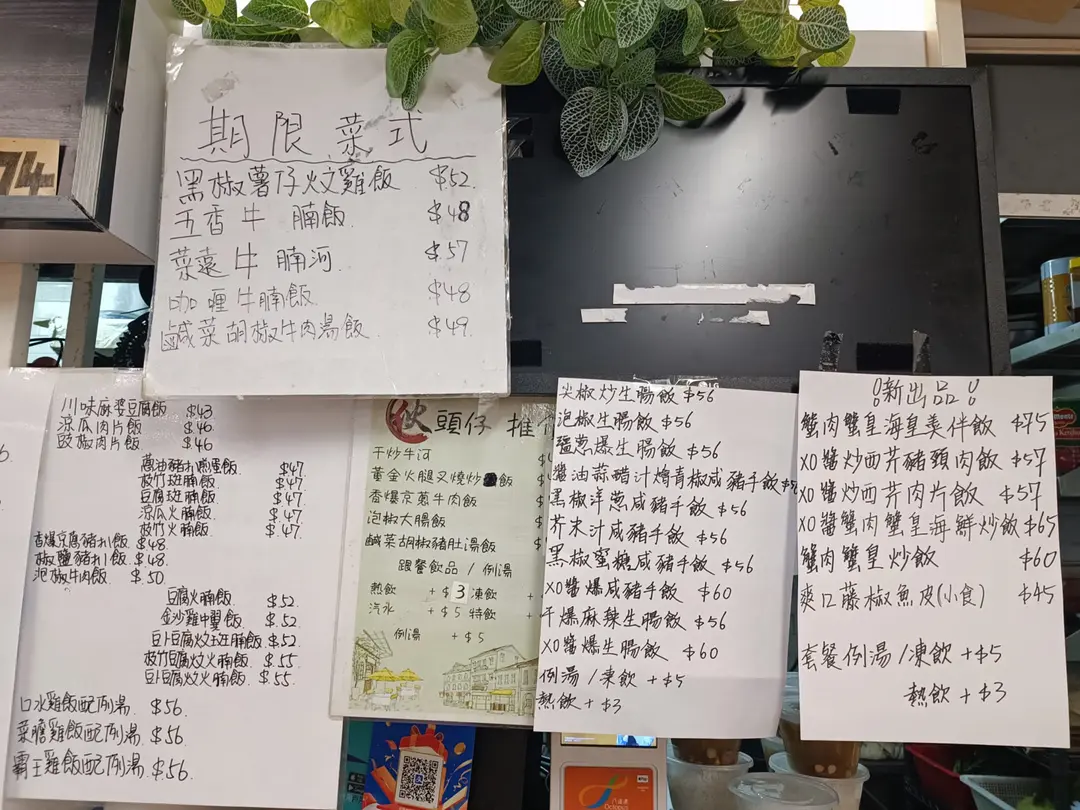 74
期限菜式
黑椒薯仔炆雞飯 $52.
五香牛腩飯 $48
菜薳牛腩河 $57
咖喱牛腩飯 $48
鹹菜胡椒牛肉湯飯 $49.
川味麻婆豆腐飯 $43
涼瓜肉片飯 $46
豉椒肉片飯 $46
蔥油豬扒煎蛋飯 $47
枝竹斑腩飯 $47
豆腐斑腩飯 $47
涼瓜火腩飯 $47
枝竹火腩飯 $47
香爆京蔥豬扒飯 $48
椒鹽豬扒飯 $48.
泡椒牛肉飯 $50
豆腐火腩飯 $52
金沙雞中翼飯 $52
豆卜豆腐炆斑腩飯 $52
枝竹豆腐炆火腩飯 $55
豆卜豆腐炆火腩飯 $55
口水雞飯配例湯 $56
菜膽雞飯配例湯 $56
霸王雞飯配例湯 $56.
伙頭仔 推
干炒牛河
黃金火腿叉燒炒飯
香爆京蔥牛肉飯
泡椒大腸飯
鹹菜胡椒豬肚湯飯
跟餐飲品/例湯
熱飲 +$3 凍飲 +
汽水 +$5 特飲 +
例湯 +$5
尖椒炒生腸飯 $56
泡椒生腸飯 $56
鹽蔥爆生腸飯 $56
醬油蒜醋汁燒青椒咸豬手飯
黑椒洋蔥咸豬手飯 $56
芥末汁咸豬手飯 $56
黑椒蜜糖咸豬手飯 $56
XO醬爆咸豬手飯 $60
干爆麻辣生腸飯 $56
XO醬爆生腸飯 $60
例湯/凍飲 +$5
熱飲 +$3
!新出品!
蟹肉蟹皇海皇羙伴飯 $75
XO醬炒西芹豬頸肉飯 $57
XO醬炒西芹肉片飯 $57
XO醬蟹肉蟹皇海鮮炒飯 $65
蟹肉蟹皇炒飯 $60
爽口藤椒魚皮(小食) $45
套餐例湯/凍飲 +$5
熱飲 +$3
八達通
Octopus